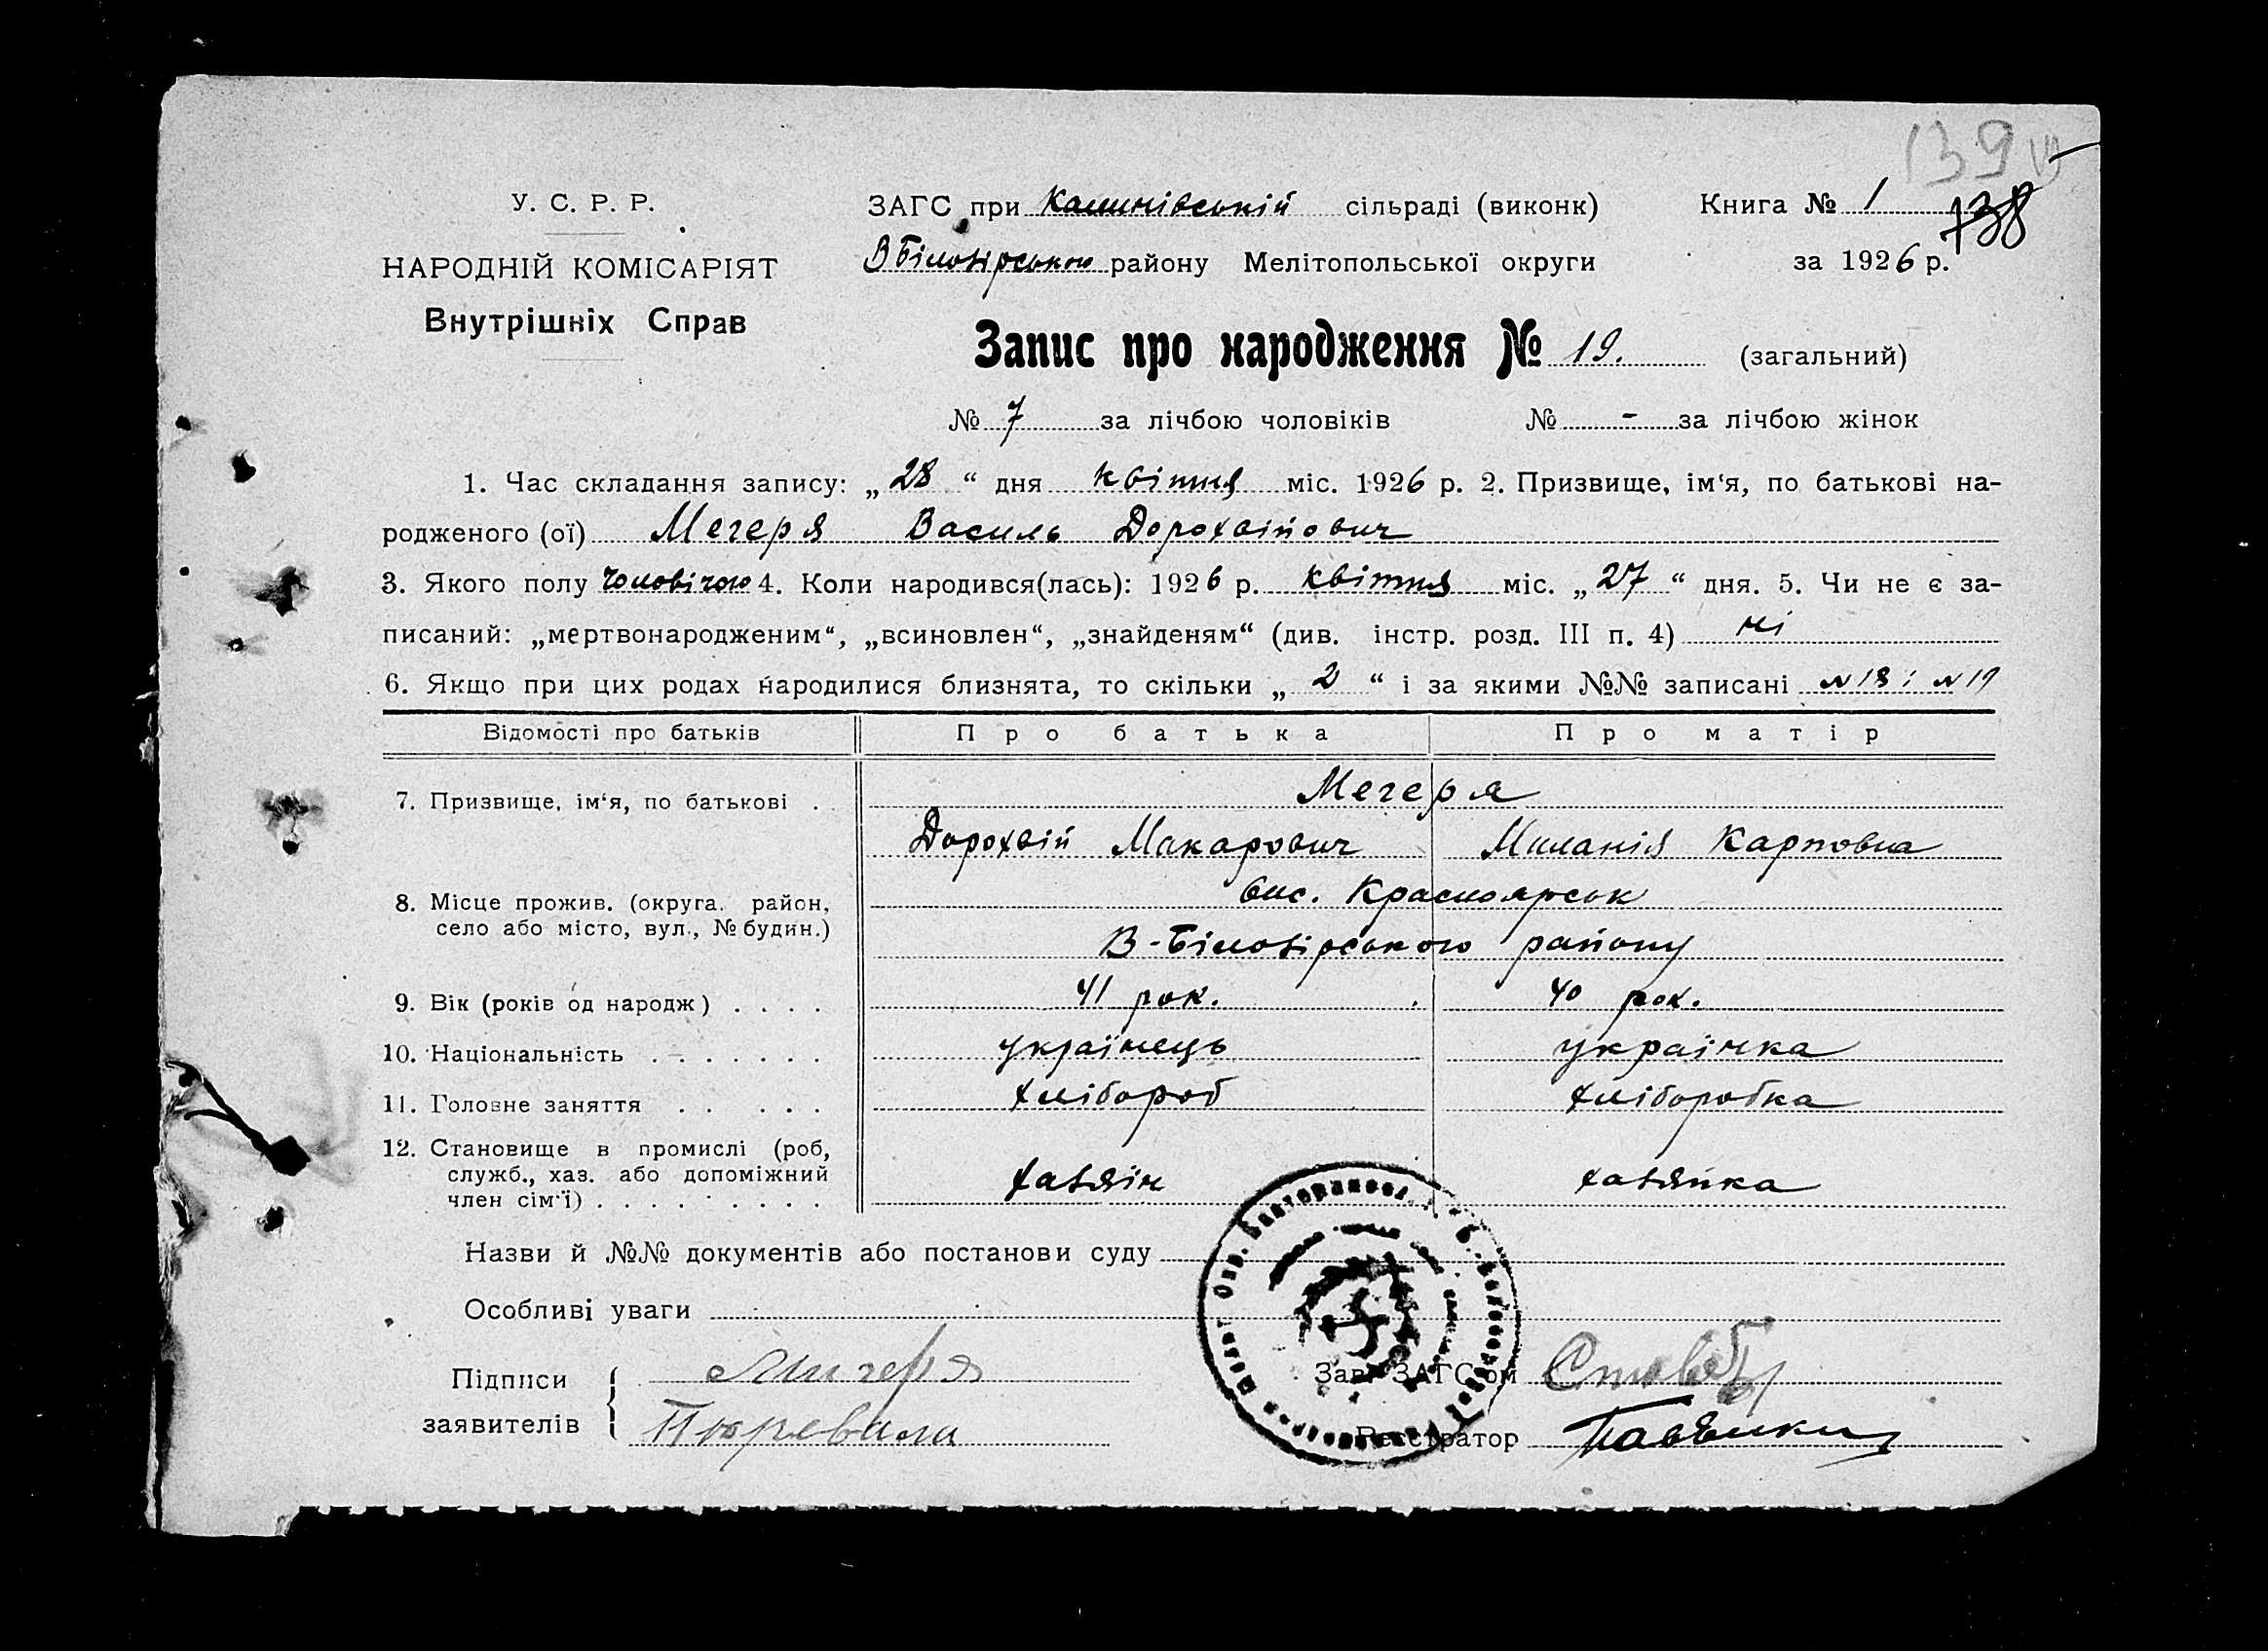 139
У. С. Р. Р.
НАРОДНІЙ КОМІСАРІЯТ
Внутрішніх Справ
ЗАГС при Калинівській сільраді (виконк)
В Білозірського району Мелітопольської округи
Книга № 1
138
за 1926 р.
Запис про народження № 19. (загальний)
№ 7 за лічбою чоловіків № - за лічбою жінок
1. Час складання запису: „28“ дня квітня міс. 1926 р. 2. Призвище, ім‘я, по батькові на-
родженого (ої) Мегеря Василь Дорохвійович
3. Якого полу чоловічого 4. Коли народився(лась): 1926 р. квітня міс. „27“ дня. 5. Чи не є за-
писаний: „мертвонародженим“, „всиновлен“, „знайденям“ (див. інстр. розд. III п. 4) ні
6. Якщо при цих родах народилися близнята, то скільки „2“ і за якими №№ записані №18 і №19
Відомості про батьків Про батька Про матір
7. Призвище, ім‘я, по батькові . . Мегеря
Дорохвій Макарович Миланія Карповна
8. Місце прожив. (округа, район,
село або місто, вул., № будин.)
вис. Красноярськ
В-Білозірського району
9. Вік (років од народж) . . . . 41 рок. 40 рок.
10. Національність . . . . . . . українець українка
11. Головне заняття . . . . . . хлібороб хліборобка
12. Становище в промислі (роб,
служб., хаз. або допоміжний
член сім‘ї) . . . . . . . . хазяін хазяйка
Назви й №№ документів або постанови суду
Особливі уваги
Підписи
заявителів
Мигеря
Зав. ЗАГС‘ом
Реєстратор